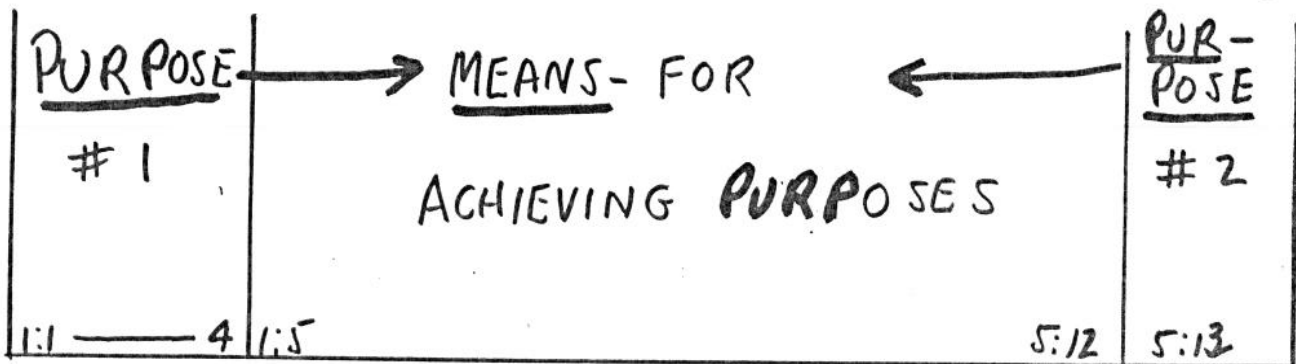 PURPOSE MEANS- FOR PUR-
POSE
# 1 # 2
ACHIEVING PURPOSES
1:1 4 1:5 5:12 5:13